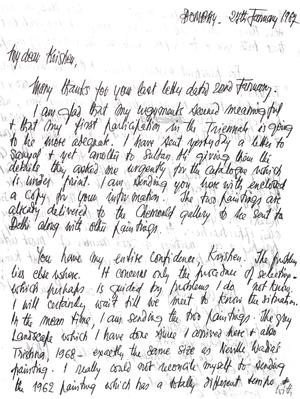 BOMBAY. 24th January 196
My dear Krishen,
Many thanks for your last letter dated 22nd January.
I am glad that my arguments seemed meaningful
& that my first participation in the Triennale is going
to be more adequate. I have sent yesterday a letter to
Sanyal & yet another to Sultan Ali giving them the
details they asked me urgently for the catalogue which
is under print. I am sending you here with enclosed
a copy for your information. The two paintings are
already delivered to the Chemould gallery to be sent to
Delhi along with other paintings.
You have my entire confidence, Krishen. The problem
lies elsewhere. It concerns only the procedure of selection -
which perhaps is guided by problems I do not know.
I will certainly wait till we meet to know the situation.
In the mean time, I am sending the two paintings - the grey
Landscape which I have done since I arrived here & also
1968 - exactly the same size as Neville Wadia's
painting. I really could not reconcile myself to sending
the 1962 painting which has a totally different tempo &